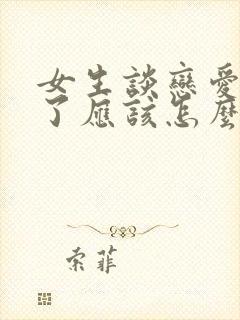 女生談戀愛
了應該怎麼
索菲